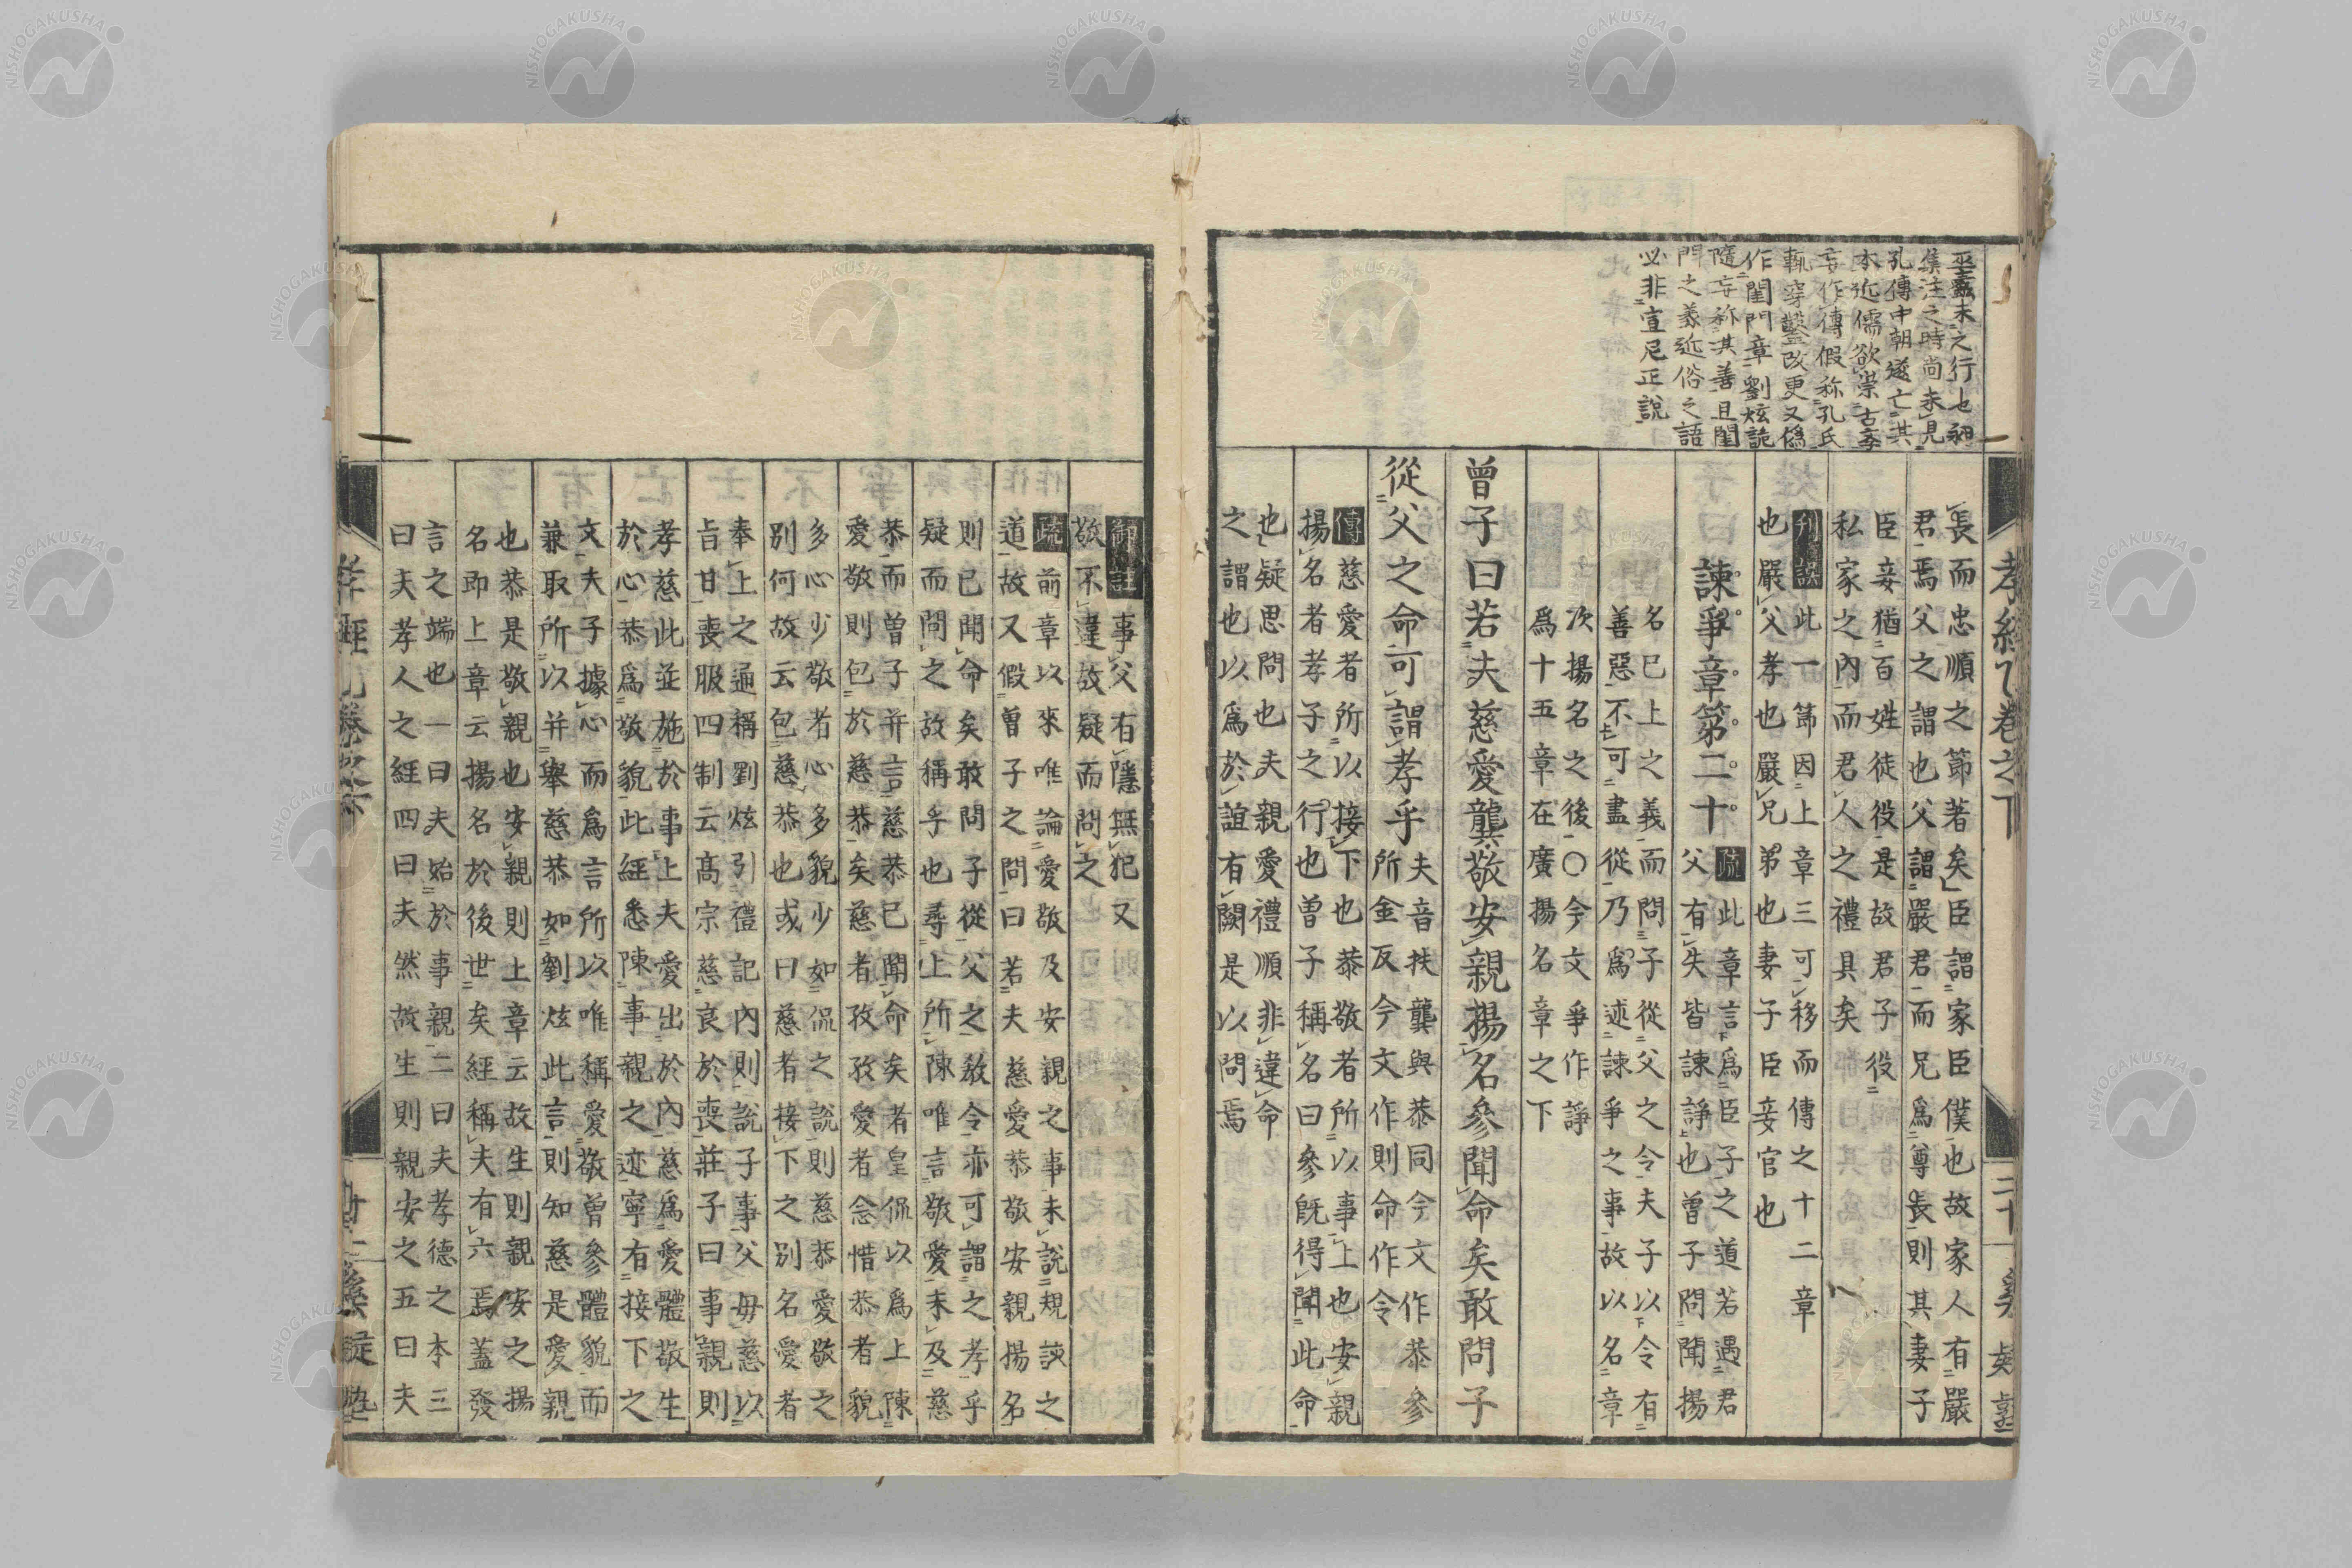 巫蠱未之行也昶
集注之時尚未見
孔傳中朝遂亡其
本近儒欲崇古學
妄作傳假稱孔氏
輒穿鑿改更又僞
作閨門章劉炫詭
隨妄稱其善且閨
門之義近俗之語
必非宣尼正說
長而忠順之節著矣臣謂家臣僕也故家人有嚴
君焉父之謂也父謂嚴君而兄爲尊長則其妻子
臣妾猶百姓徒役是故君子役
私家之內而君人之禮具矣
刊誤此一節因上章三可移而傳之十二章
也嚴父孝也嚴兄弟也妻子臣妾官也
諫爭章第二十
疏此章言爲臣子之道若遇君
父有失皆諫諍也曾子問聞揚
名已上之義而問子從父之令夫子以令有
善惡不可盡從乃爲述諫爭之事故以名章
次揚名之後〇今文爭作諍
爲十五章在廣揚名章之下
曾子曰若夫慈愛龔敬安親揚名參聞命矣敢問子
從父之命可謂孝乎
夫音扶龔與恭同今文作恭參
所金反今文作則命作令
傳慈愛者所以接下也恭敬者所以事上也安親
揚名者孝子之行也曾子稱名曰參既得聞此命
也疑思問也夫親愛禮順非違命
之謂也以爲於誼有闕是以問焉
孝經 卷之下
二十一
御註事父有隱無犯又
敬不違故疑而問之
疏前章以來唯論愛敬及安親之事未說規諫之
道故又假曾子之問曰若夫慈愛恭敬安親揚名
則已聞命矣敢問子從父之教令亦可謂之孝乎
疑而問之故稱乎也尋上所陳唯言敬愛未及慈
恭而曾子并言慈恭已聞命矣者皇侃以爲上陳
愛敬則包於慈恭矣慈者孜孜愛者念惜恭者貌
多心少敬者心多貌少如侃之說則慈恭愛敬之
別何故云包慈恭也或曰慈者接下之別名愛者
奉上之通稱劉炫引禮記內則說子事父母慈以
旨甘喪服四制云高宗慈良於喪莊子曰事親則
孝慈此並施於事上夫愛出於內慈爲愛體敬生
於心恭爲敬貌此經悉陳事親之迹寧有接下之
文夫子據心而爲言所以唯稱愛敬曾參體貌而
兼取所以并舉慈恭如劉炫此言則知慈是愛親
也恭是敬親也安親則上章云故生則親安之揚
名即上章云揚名於後世矣經稱夫有六焉蓋發
言之端也一曰夫始於事親二曰夫孝德之本三
曰夫孝人之經四曰夫然故生則親安之五曰夫